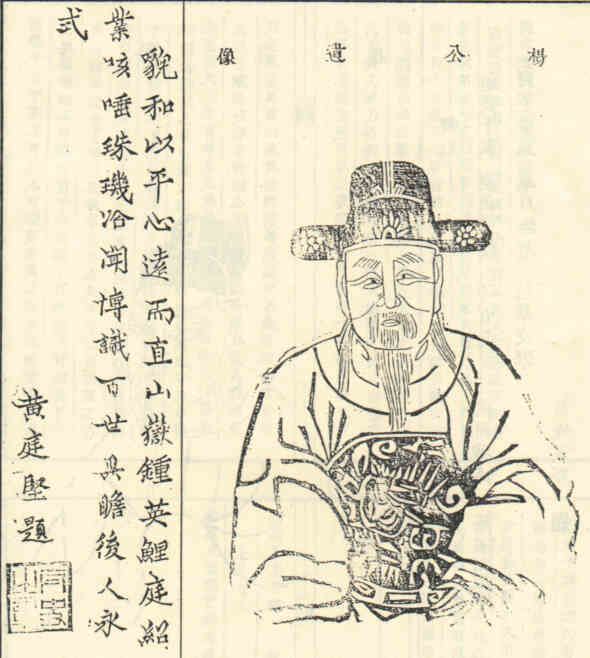 楊公遺像
貌和以平心遠而直山嶽鍾英鯉庭紹
業咳唾珠璣洽聞博識百世具瞻後人永
式
黃庭堅題